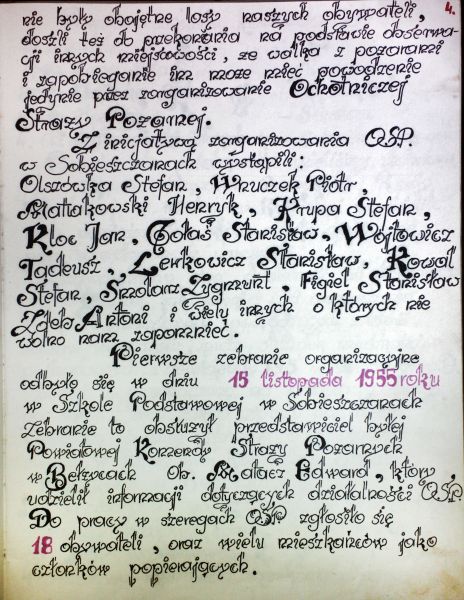 4.
nie były obojętne losy naszych obywateli,
doszli też do przekonania na podstawie obserwa-
cji innych miejscowości, ze walka z pozarami
i zapobieganie im moze mieć powodzenie
jedynie przez zorganizowanie Ochotniczej
Strazy Pozarnej.
Z inicjatywą zorganizowania OSP.
w Sobieszczanach wystąpili:
Olszówka Stefan, Mruczek Piotr,
Małiakowski Henryk, Krupa Stefan,
Kloc Jan, Gołaś Stanisław, Wójtowicz
Tadeusz, Lenkowicz Stanisław, Kowal
Stefan, Smolarz Zygmunt, Figiel Stanisław
Zdeb Antoni i wielu innych o których nie
wolno nam zapomnieć.
Pierwsze zebranie organizacyjne
odbyło się w dniu 15 listopada 1955 roku
w Szkole Podstawowej w Sobieszczanach
Zebranie to obsłuzył przedstawiciel byłej
Powiatowej Komendy Strazy Pozarnych
w Bełzycach Ob. Małacz Edward, który
udzielił informacji dotyczących działalności OSP
Do pracy w szeregach OSP zgłosiło się
18 obywateli, oraz wielu mieszkańców jako
członków popierających.